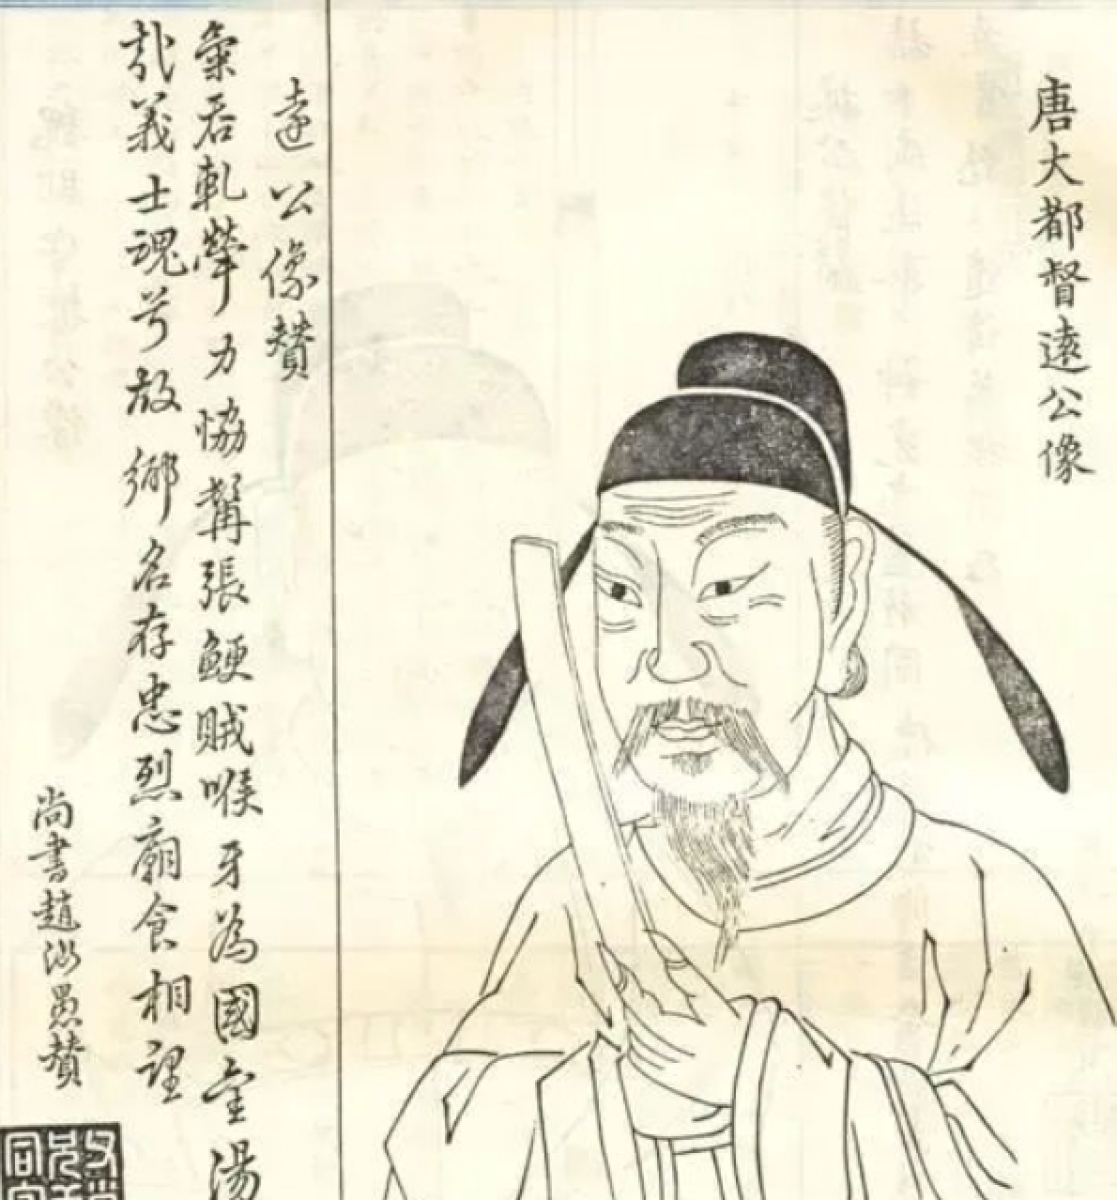 唐大都督遠公像
遠公像賛
氣吞軋犖力協髯張鯁賊喉牙為國金湯
哉義士魂兮故鄉名存忠烈廟食相望
尚書趙汝愚賛